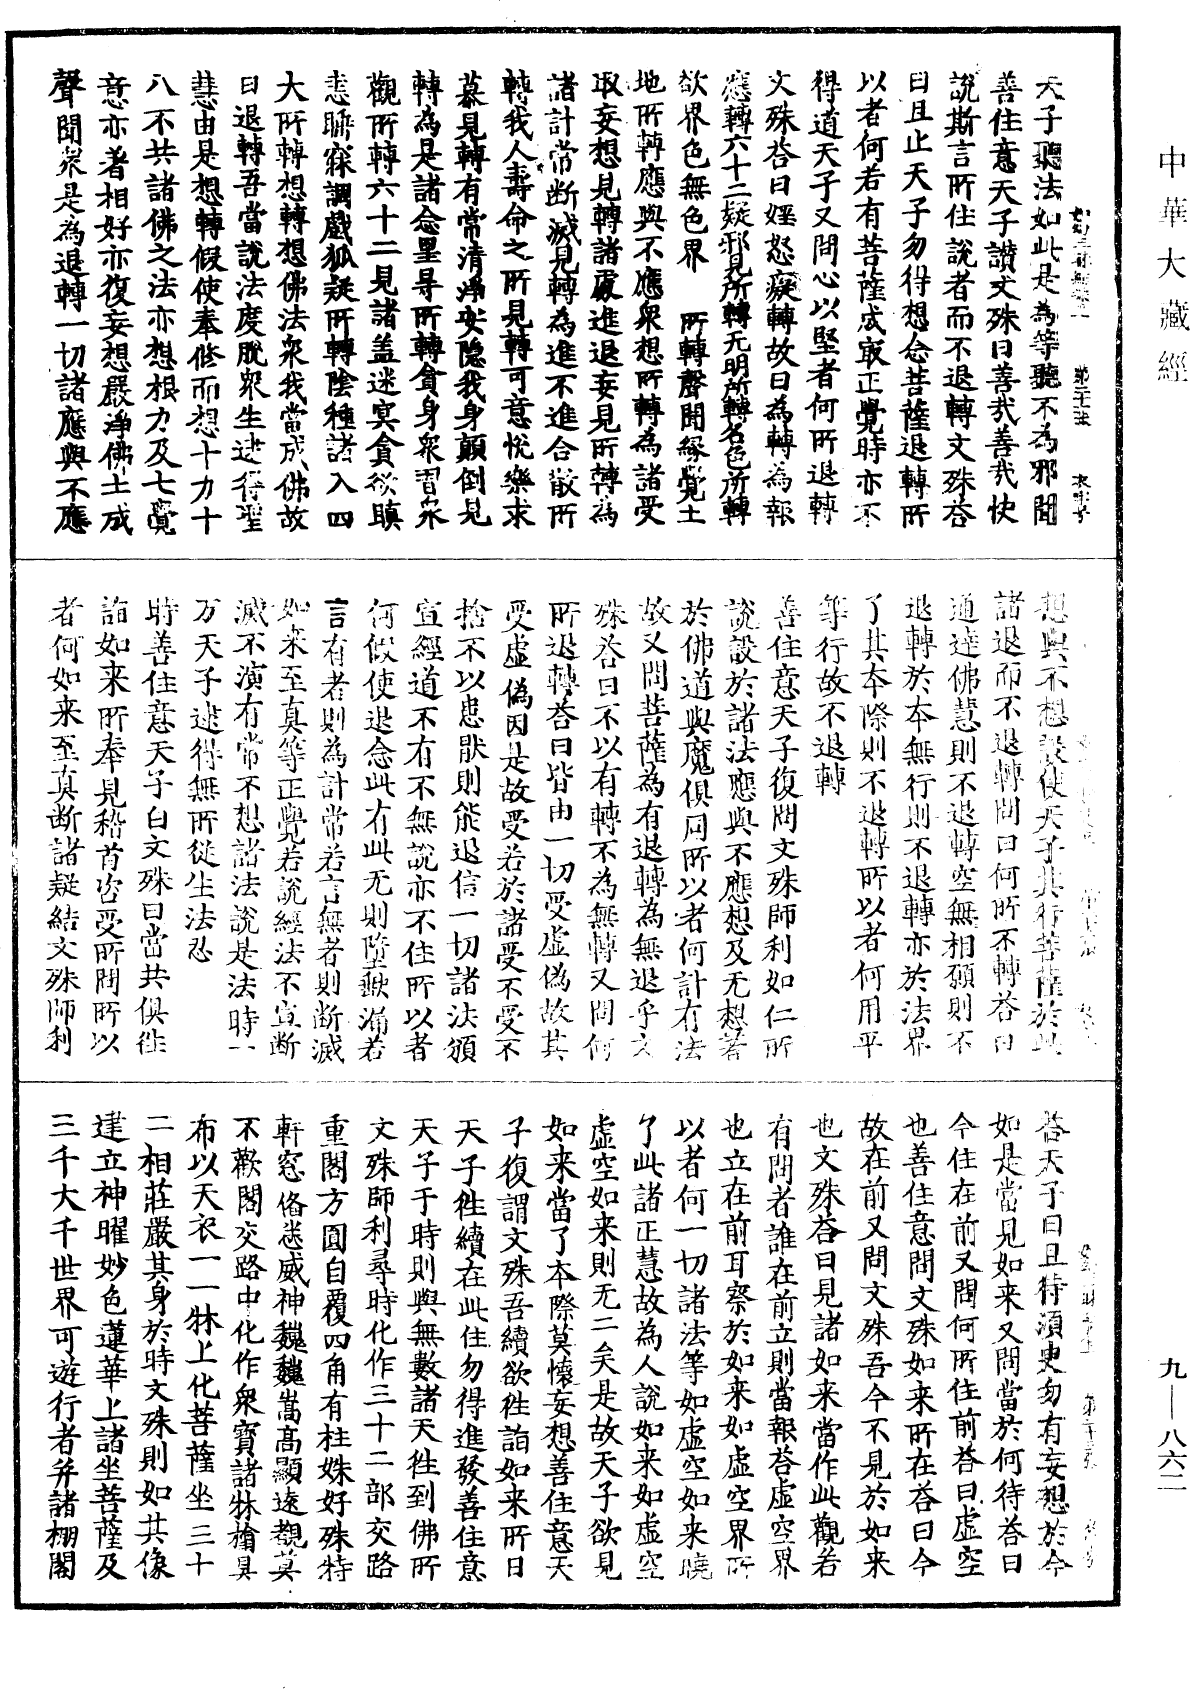 中華大藏經
天子聽法如此是為等聽不為邪聞
善住意天子讃文殊曰善哉善哉快
說斯言所住說者而不退轉文殊荅
曰且止天子勿得想念菩薩退轉所
以者何若有菩薩成㝡正覺時亦不
得道天子又問心以堅者何所退轉
文殊荅曰婬怒癡轉故曰為轉為報
應轉六十二疑邪見所轉无明所轉名色所轉
欲界色無色界 所轉聲聞緣覺土
地所轉應與不應衆想所轉為諸受
取妄想見轉諸處進退妄見所轉為
諸計常斷滅見轉為進不進合散所
轉我人壽命之所見轉可意悅樂求
慕見轉有常清淨安隱我身顛倒見
轉為是諸念罣㝵所轉貪身衆習衆
觀所轉六十二見諸盖迷冥貪欲瞋
恚睡寐調戲狐疑所轉陰種諸入四
大所轉想轉想佛法衆我當成佛故
曰退轉吾當說法度脫衆生逮得聖
慧由是想轉假使奉修而想十力十
八不共諸佛之法亦想根力及七覺
意亦著相好亦復妄想嚴淨佛土成
聲聞衆是為退轉一切諸應與不應
想與不想設使天子其行菩薩於此
諸退而不退轉問曰何所不轉荅曰
通達佛慧則不退轉空無相願則不
退轉於本無行則不退轉亦於法界
了其本際則不退轉所以者何用平
等行故不退轉
善住意天子復問文殊師利如仁所
說設於諸法應與不應想及无想著
於佛道與魔俱同所以者何計有法
故又問菩薩為有退轉為無退乎文
殊荅曰不以有轉不為無轉又問何
所退轉荅曰皆由一切受虛偽故其
受虛偽因是故受若於諸受不受不
捨不以患猒則能退信一切諸法頒
宣經道不有不無說亦不住所以者
何假使退念此有此无則墮歁漏若
言有者則為計常若言無者則斷滅
如来至真等正覺若說經法不宣斷
滅不演有常不想諸法說是法時一
万天子逮得無所從生法忍
時善住意天子白文殊曰當共俱徃
詣如来所奉見稽首咨受所問所以
者何如来至真斷諸疑結文殊師利
荅天子曰且待湏㬰勿有妄想於今
如是當見如来又問當於何待荅曰
今住在前又問何所住前荅曰虛空
也善住意問文殊如来所在荅曰今
故在前又問文殊吾今不見於如来
也文殊荅曰見諸如来當作此觀若
有問者誰在前立則當報荅虛空界
也立在前耳察於如来如虛空界所
以者何一切諸法等如虛空如来曉
了此諸正慧故為人說如来如虛空
虛空如来則无二矣是故天子欲見
如来當了本際莫懷妄想善住意天
子復謂文殊吾續欲徃詣如来所曰
天子徃續在此住勿得進發善住意
天子于時則與無數諸天徃到佛所
文殊師利尋時化作三十二部交路
重閣方圓自覆四角有柱姝好殊特
軒窓俻悉威神巍巍嵩高顯逺觀莫
不歡閣交路中化作衆寶諸牀榻具
布以天衣一一牀上化菩薩坐三十
二相莊嚴其身於時文殊則如其像
建立神曜妙色蓮華上諸坐菩薩及
三千大千世界可遊行者并諸棚閣
九—八六二